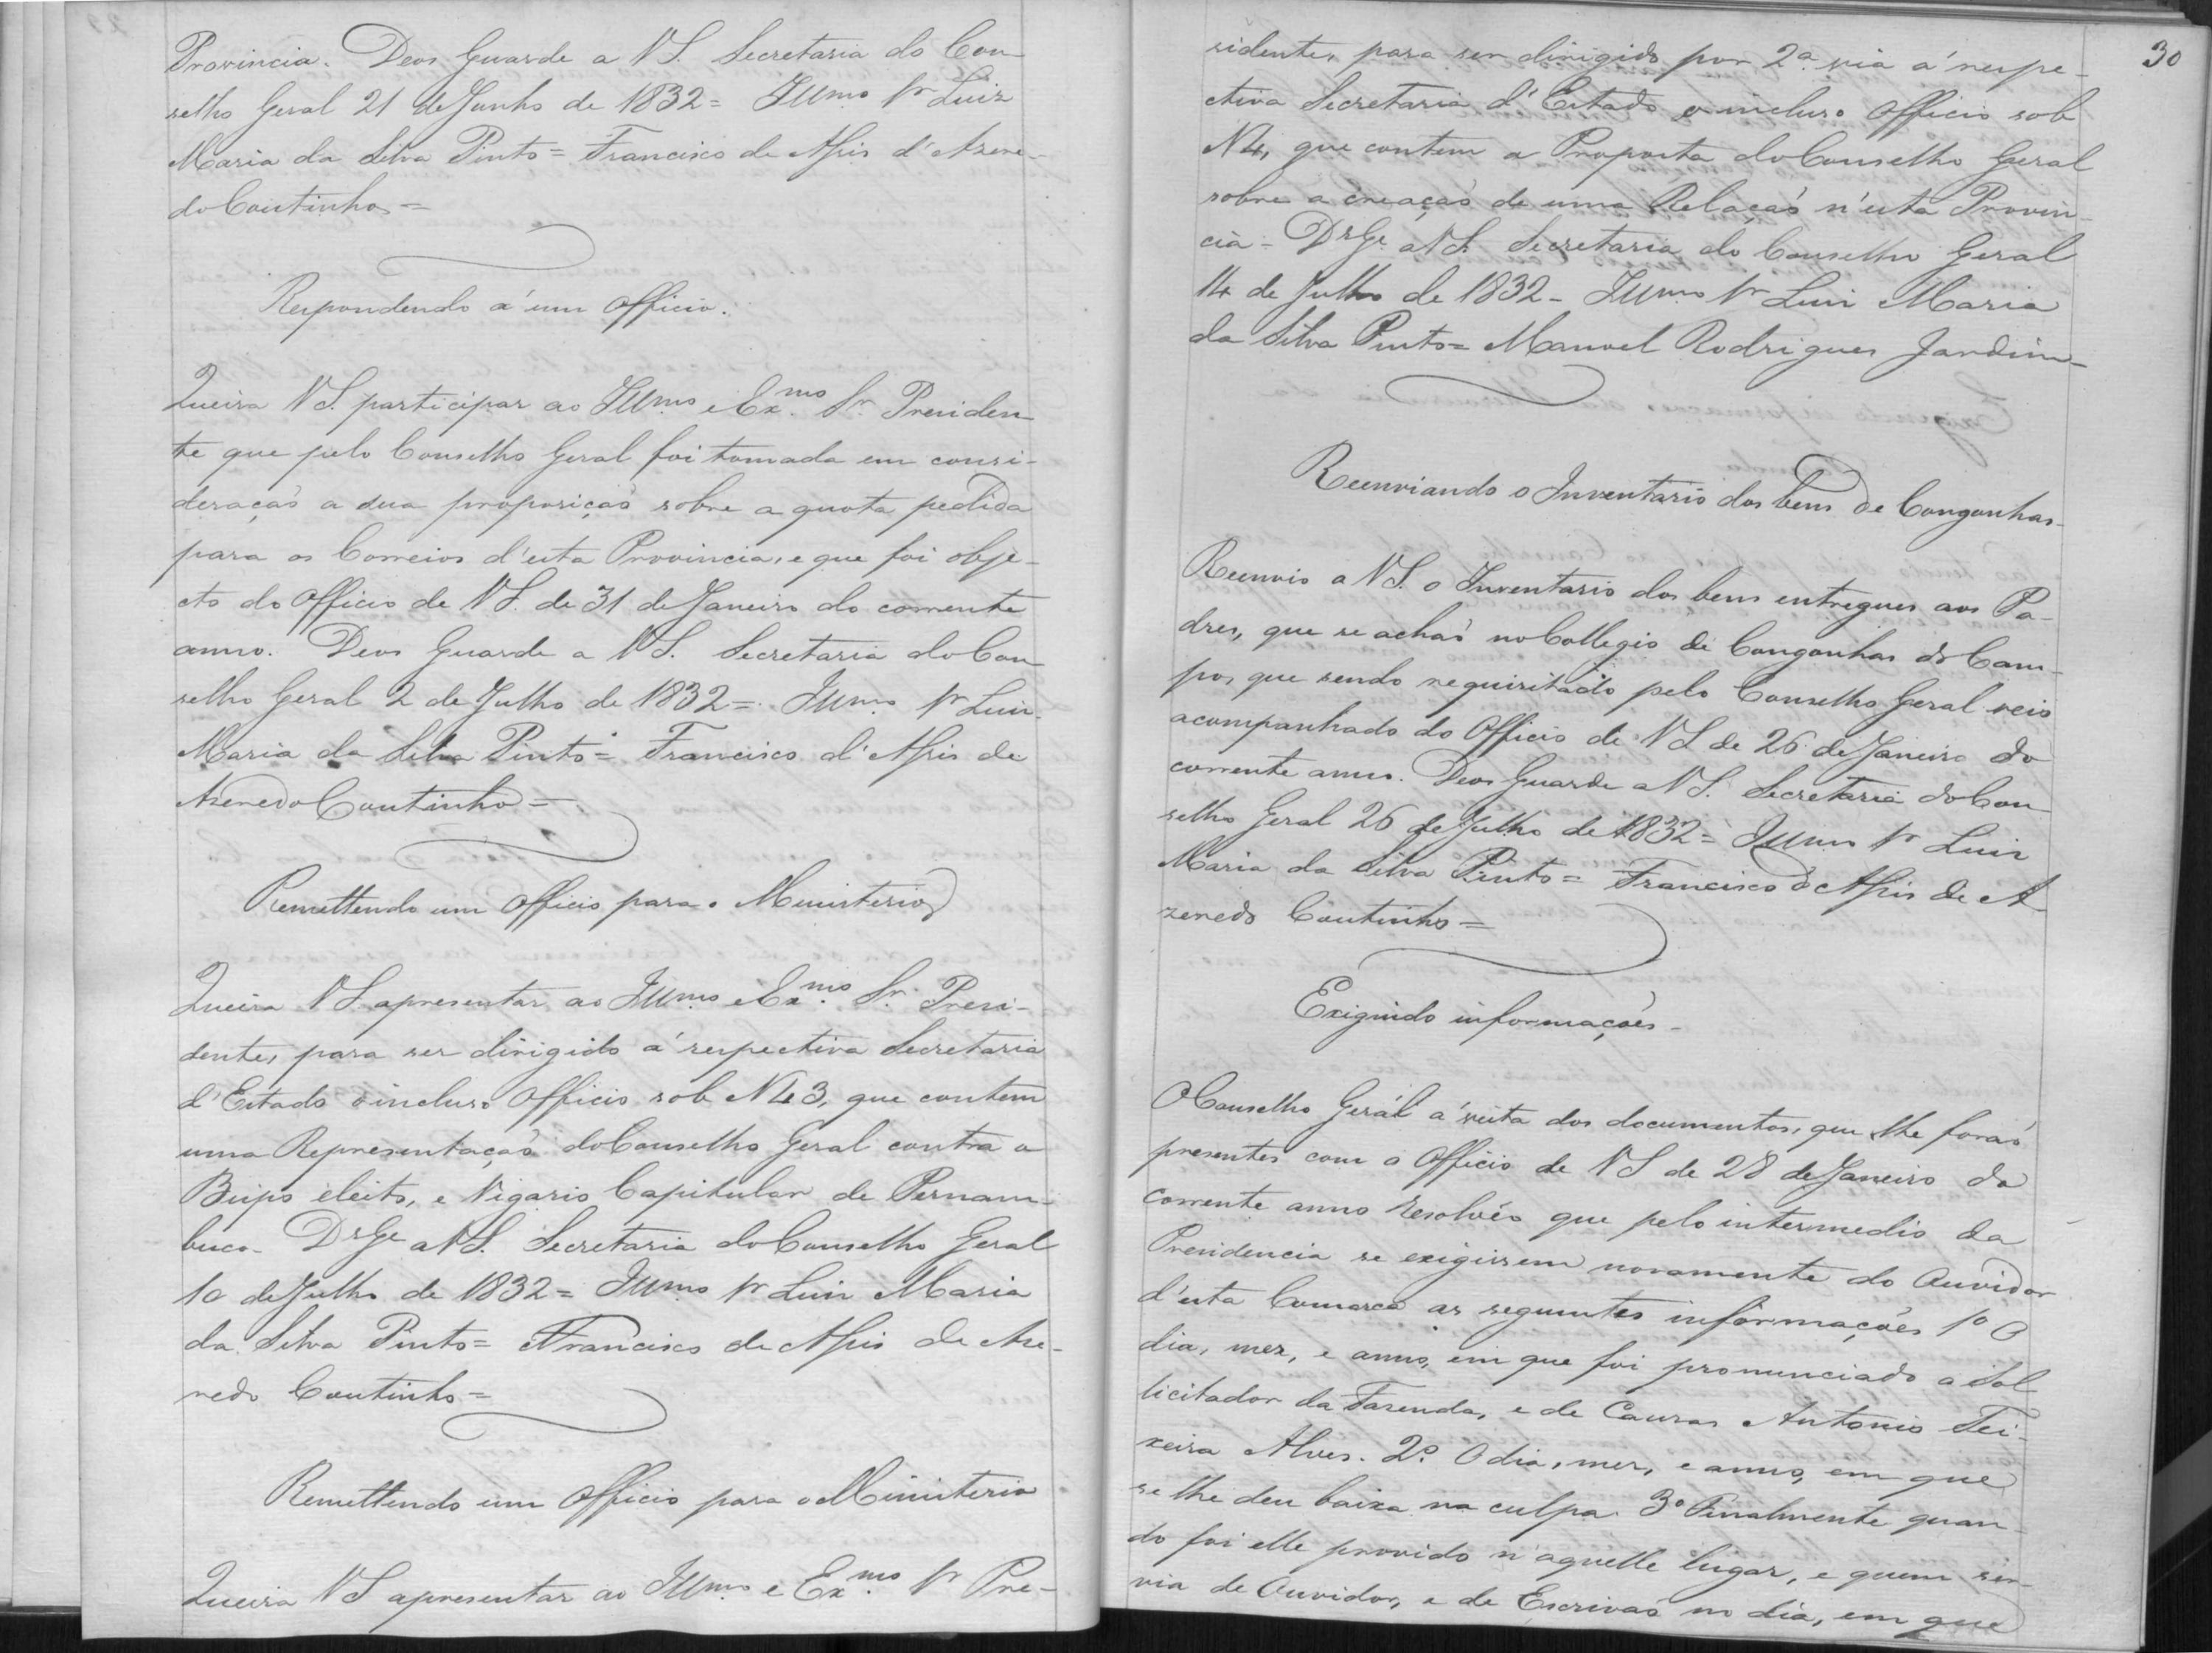 Provincia. Deos Guarde a VS. Secretaria do Con-
selho Geral 21 de Junho de 1832 = Illmo Sr Luiz
Maria da Silva Pinto = Francisco de Assis d'Azere-
do Coutinho =
Respondendo á um officio.
Queira VS. participar ao Illmo e Exmo Sr Presiden
te que pelo Conselho Geral foi tomada em consi-
deração a sua proposição sobre a quota pedida
para os Correios d'esta Provincia, e que foi obje-
cto do Officio de VS. de 31 de Janeiro do corrente
anno. Deos Guarde a VS. Secretaria do Con-
selho Geral 2 de Julho de 1832 = Illmo Sr Luiz
Maria da Silva Pinto = Francisco d'Assis de
Azeredo Coutinho =
Remettendo um Officio para o Ministerio
Queira VS apresentar ao Illmo e Exmo Sr Presi-
dente, para ser dirigido á respectiva Secretaria
d'Estado o incluso Officio sob N 43, que contem
uma Representação do Conselho Geral contra o
Bispo eleito, e Vigario Capitular de Pernam-
buco. Ds Ge a VS. Secretaria do Conselho Geral
10 de Julho de 1832 = Illmo Sr Luiz Maria
da Silva Pinto = Francisco de Assis de Aze-
redo Coutinho =
Remettendo um Officio para o Ministerio
Queira VS apresentar ao Illmo e Exmo Sr Pre-
30
sidente, para ser dirigido por 2a via á respe-
ctiva Secretaria d'Estado o incluso Officio sob
N 4, que contem a Proposta do Conselho Geral
sobre a creação de uma Relação n'esta Provin-
cia - Ds Ge a VS. Secretaria do Conselho Geral
14 de Julho de 1832 - Illmo Sr Luiz Maria
da Silva Pinto = Manoel Rodrigues Jardim -
Reenviando o Inventario dos bens de Congonhas -
Reenvio a VS. o Inventario dos bens entregues aos Pa-
dres, que se achão no Collegio de Congonhas do Cam-
po, que sendo requisitado pelo Conselho Geral veio
acompanhado do Officio de VS de 26 de Janeiro do
corrente anno. Deos Guarde a VS. Secretaria do Con
selho Geral 26 de Julho de 1832 = Illmo Sr Luiz
Maria da Silva Pinto = Francisco d'Assis de A-
zeredo Coutinho =
Exigindo informações -
O Conselho Geral á vista dos documentos, que lhe forão
presentes com o Officio de VS de 28 de Janeiro do
corrente anno resolvêo que pelo intermedio da
Presidencia se exigissem novamente do Ouvidor
d'esta Comarca as seguintes informações 1o O
dia, mez, e anno, em que foi pronunciado o Sol
licitador da Fazenda, e de Causas Antonio Tei-
xeira Alves. 2o O dia, mez, e anno, em que
se lhe deu baixa na culpa. 3o Finalmente quan-
do foi elle provido n'aquelle lugar, e quem ser-
via de Ouvidor, e de Escrivão no dia, em que